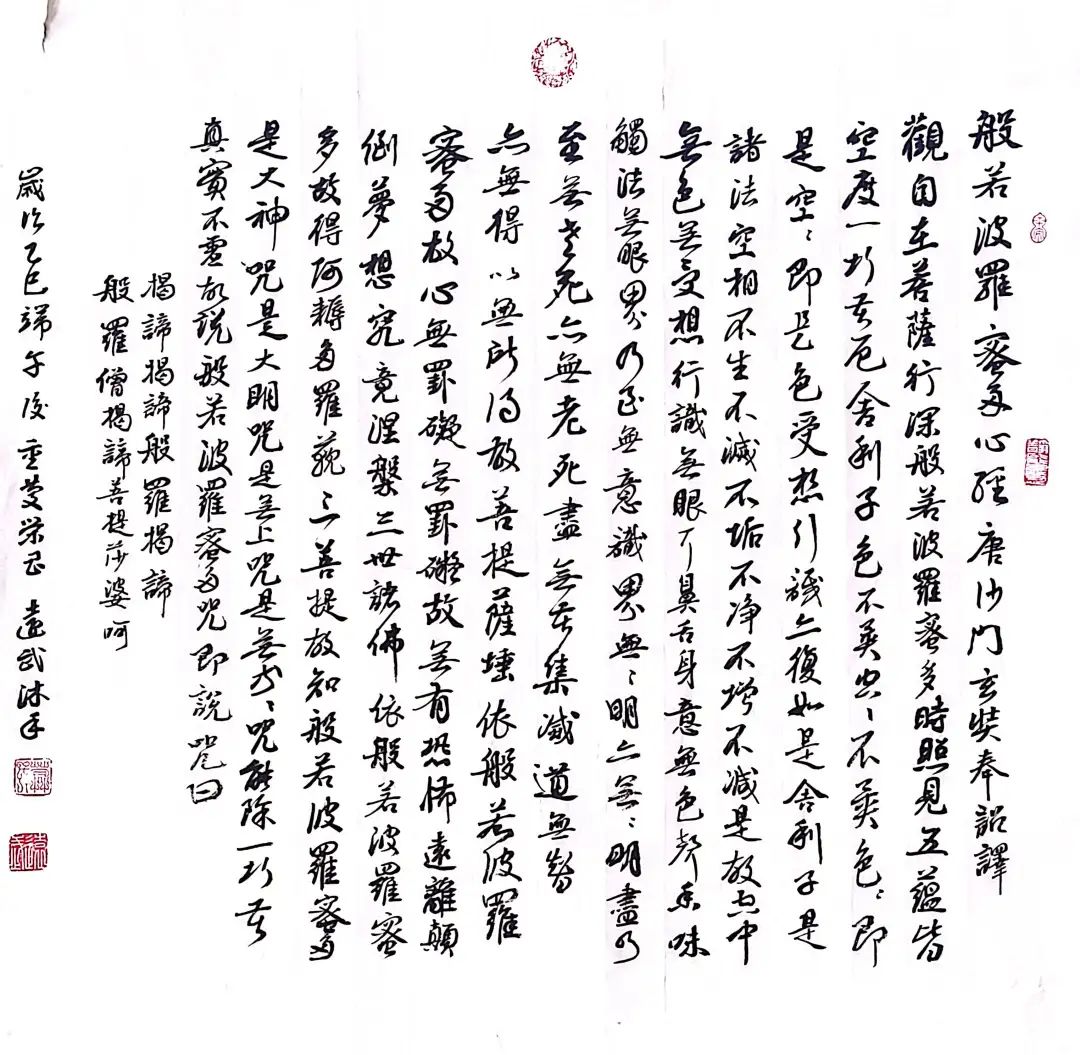 般若波羅蜜多心經唐沙門玄奘奉詔譯
觀自在菩薩行深般若波羅蜜多時照見五蘊皆
空度一切苦厄舍利子色不異空〻不異色〻即
是空〻即是色受想行識亦復如是舍利子是
諸法空相不生不滅不垢不净不增不减是故空中
無色無受想行識無眼耳鼻舌身意無色聲香味
觸法無眼界乃至無意識界無〻明亦無〻明盡乃
至無老死亦無老死盡無苦集滅道無智
亦無得以無所得故菩提薩埵依般若波羅
蜜多故心無罣礙無罣礙故無有恐怖遠離顛
倒夢想究竟涅槃三世諸佛依般若波羅蜜
多故得阿耨多羅藐三菩提故知般若波羅蜜多
是大神咒是大明咒是無上咒是無等〻咒能除一切苦
真實不虛故說般若波羅蜜多咒即說咒曰
揭諦揭諦般羅揭諦
般羅僧揭諦菩提莎婆呵
歲次乙巳端午後 遠武沐手